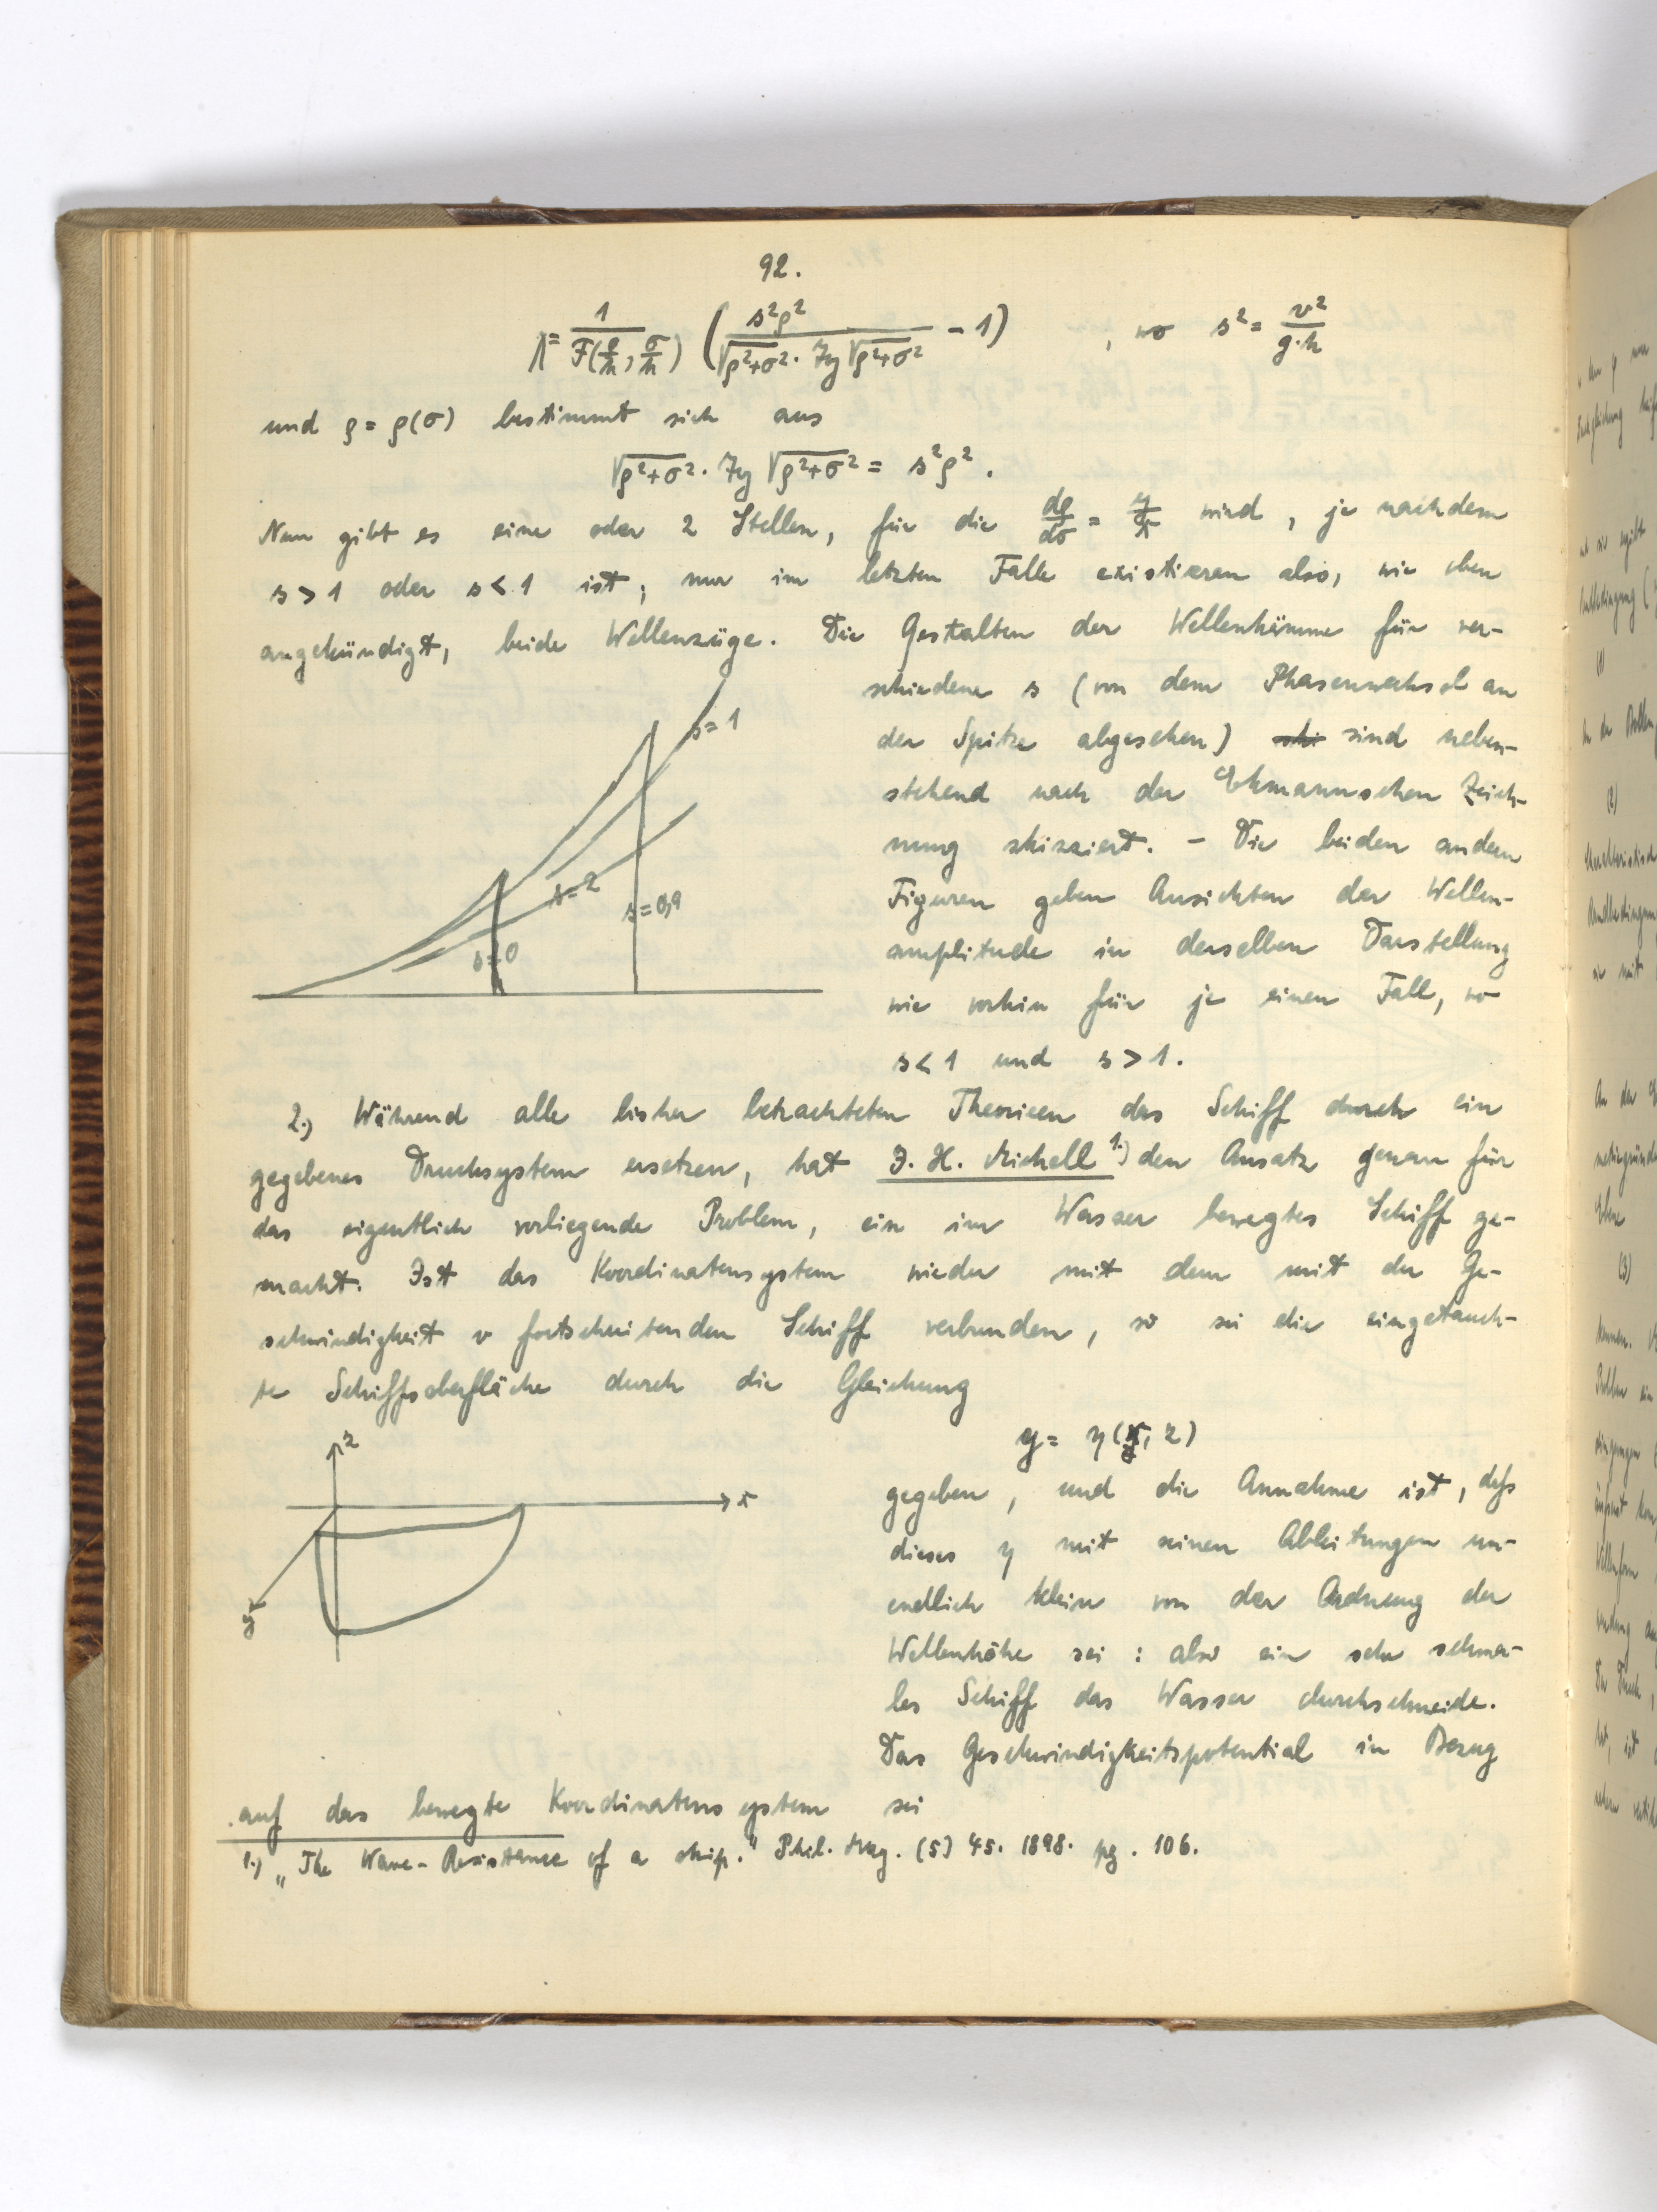 92.
Λ = 1/F(ρ/h, σ/h) (s²ρ²/(√ρ²+σ² · Tg √ρ²+σ²) - 1) , wo s² = v²/(g·h)
und ρ = ρ(σ) bestimmt sich aus
√ρ²+σ² · Tg √ρ²+σ² = s²ρ².
Nun gibt es eine oder 2 Stellen, für die dρ/dσ = y/x wird, je nachdem
s > 1 oder s < 1 ist; nur im letzten Falle existieren also, wie oben
angekündigt, beide Wellenzüge. Die Gestalten der Wellenkämme für ver-
schiedene s (von dem Phasenwechsel an
der Spitze abgesehen) sind neben-
stehend nach der Ekmannschen Zeich-
nung skizziert. - Die beiden andern
Figuren geben Ansichten der Wellen-
amplitude in derselben Darstellung
wie vorhin für je einen Fall, wo
s < 1 und s > 1.
s=1
s=2
s=0,9
s=0
2.) Während alle bisher betrachteten Theorieen das Schiff durch ein
gegebenes Drucksystem ersetzen, hat J. H. Michell 1.) den Ansatz genau für
das eigentlich vorliegende Problem, ein im Wasser bewegtes Schiff ge-
macht. Ist das Koordinatensystem wieder mit dem mit der Ge-
schwindigkeit v fortschreitenden Schiff verbunden, so sei die eingetauch-
te Schiffsoberfläche durch die Gleichung
y = η(x, z)
z
x
y
gegeben, und die Annahme ist, daſs
dieses η mit seinen Ableitungen un-
endlich klein von der Ordnung der
Wellenhöhe sei: also ein sehr schma-
les Schiff das Wasser durchschneide.
Das Geschwindigkeitspotential in Bezug
auf das bewegte Koordinatensystem sei
1.) „The Wave-Resistance of a ship." Phil. Mag. (5) 45. 1898. pg. 106.